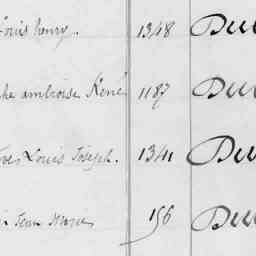 Louis henry. 1348 Du
ambroise René 1187 Du
Yves Louis Joseph. 1341 Du
Jean Marie 156 Du